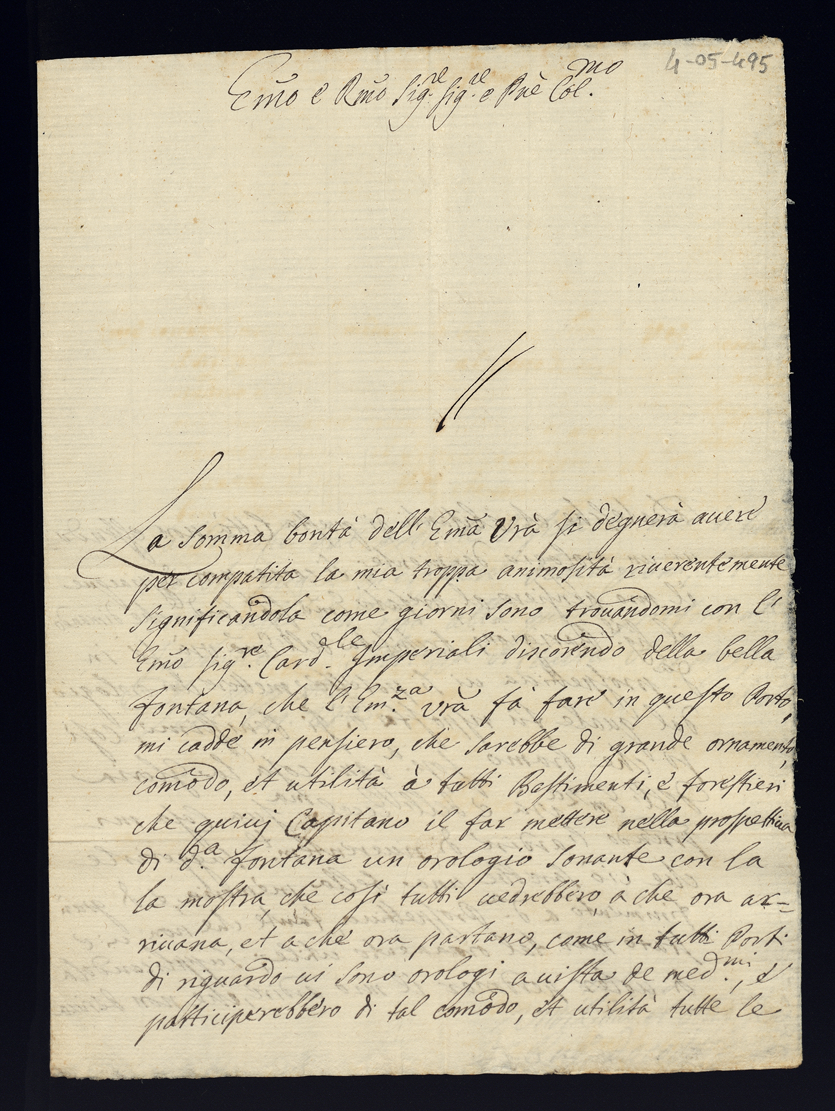 4-05-495
Em̃o e Rm̃o Sig.re Sig.re e Prẽ Col.mo
La somma bontà dell' Em̃a Vrã si degnerà auere
per compatita la mia troppa animosità riuerentemente
significandola come giorni sono trouandomi con l'
Em̃o Sig.re Card.le Imperiali discorendo della bella
fontana, che l'Em.za vrã fà fare in questo Porto,
mi cadde in pensiero, che sarebbe di grande ornamento,
com̃odo, et utilità à tutti Bastimenti, e forestieri
che quiuj Capitano il far mettere nella prospettiua
di d.a fontana un orologio sonante con la
la mostra, che così tutti uedrebbero à che ora ar=
riuana, et a che ora partano, come in tutti Porti
di riguardo ui sono orologi a uista de med.mi, e
participerebbero di tal com̃odo, et utilità tutte le